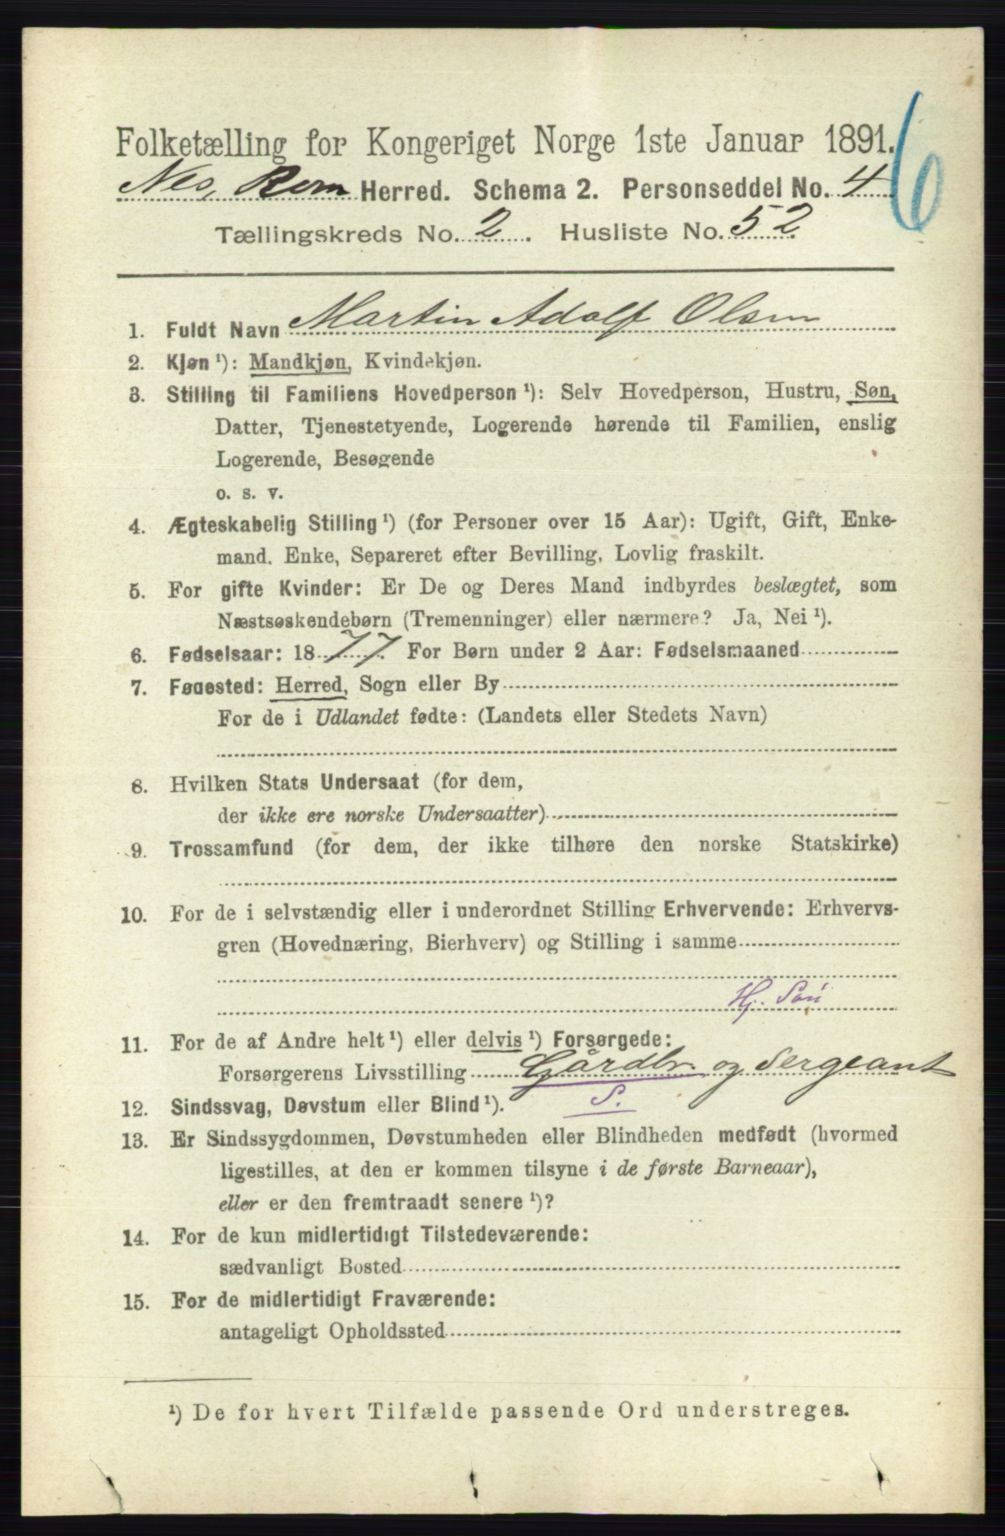 Folketælling for Kongeriget Norge 1ste Januar 1891.
6
Nes, Rom Herred. Schema 2. Personseddel No. 4
Tællingskreds No. 2. Husliste No. 52
1. Fuldt Navn Martin Adolf Olsen
2. Kjøn ¹): Mandkjøn, Kvindekjøn.
3. Stilling til Familiens Hovedperson ¹): Selv Hovedperson, Hustru, Søn,
Datter, Tjenestetyende, Logerende hørende til Familien, enslig
Logerende, Besøgende
o. s. v.
4. Ægteskabelig Stilling ¹) (for Personer over 15 Aar): Ugift, Gift, Enke-
mand. Enke, Separeret efter Bevilling, Lovlig fraskilt.
5. For gifte Kvinder: Er De og Deres Mand indbyrdes beslægtet, som
Næstsøskendebørn (Tremenninger) eller nærmere? Ja, Nei ¹).
6. Fødselsaar: 1877. For Børn under 2 Aar: Fødselsmaaned
7. Fødested: Herred, Sogn eller By
For de i Udlandet fødte: (Landets eller Stedets Navn)
8. Hvilken Stats Undersaat (for dem,
der ikke ere norske Undersaatter)
9. Trossamfund (for dem, der ikke tilhøre den norske Statskirke)
10. For de i selvstændig eller i underordnet Stilling Erhvervende: Erhvervs-
gren (Hovednæring, Bierhverv) og Stilling i samme
Hj. Søn
11. For de af Andre helt ¹) eller delvis ¹) Forsørgede:
Forsørgerens Livsstilling Gårdbr. og Sergeant
S.
12. Sindssvag, Døvstum eller Blind ¹).
13. Er Sindssygdommen, Døvstumheden eller Blindheden medfødt (hvormed
ligestilles, at den er kommen tilsyne i de første Barneaar),
eller er den fremtraadt senere ¹)?
14. For de kun midlertidigt Tilstedeværende:
sædvanligt Bosted
15. For de midlertidigt Fraværende:
antageligt Opholdssted
¹) De for hvert Tilfælde passende Ord understreges.